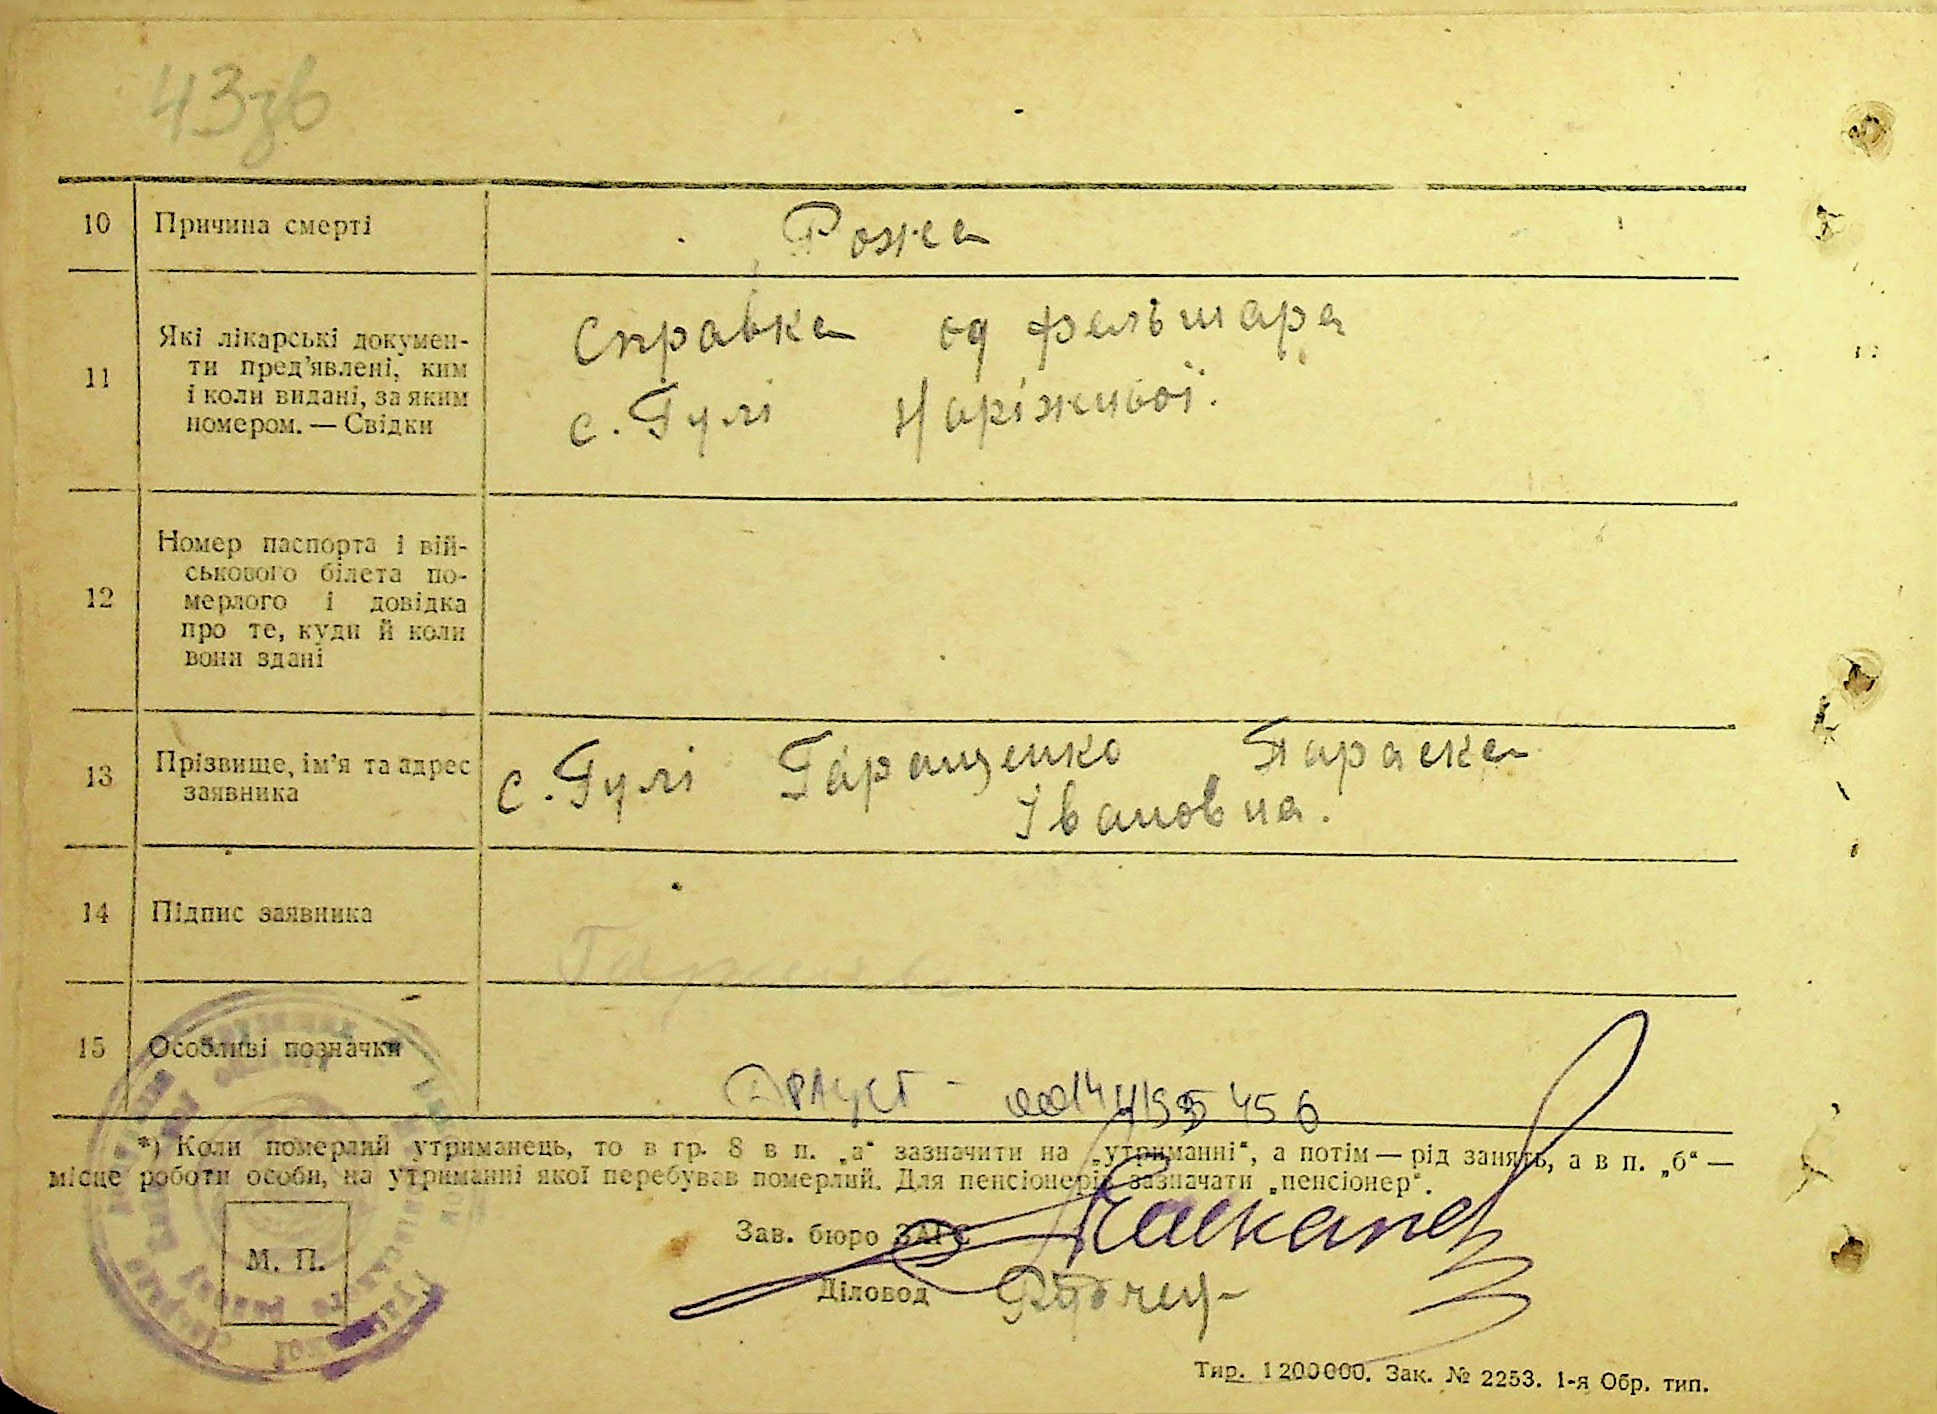 43зв
10 Причина смерті Рожа
11 Які лікарські докумен-
ти пред'явлені, ким
і коли видані, за яким
номером. — Свідки
Справка од фельшара
с. Гулі Наріжньої.
12 Номер паспорта і вій-
ськового білета по-
мерлого і довідка
про те, куди й коли
вони здані
13 Прізвище, ім'я та адрес
заявника
с. Гулі Гаращенко Параска
Івановна.
14 Підпис заявника
15 Особливі позначки
*) Коли померлий утриманець, то в гр. 8 в п. „а“ зазначити на „утриманні“, а потім — рід занять, а в п. „б“ —
місце роботи особи, на утриманні якої перебував померлий. Для пенсіонерів зазначати „пенсіонер“.
Зав. бюро ЗАГС
М. П.
Діловод
Тир. 1200000. Зак. № 2253. 1-я Обр. тип.